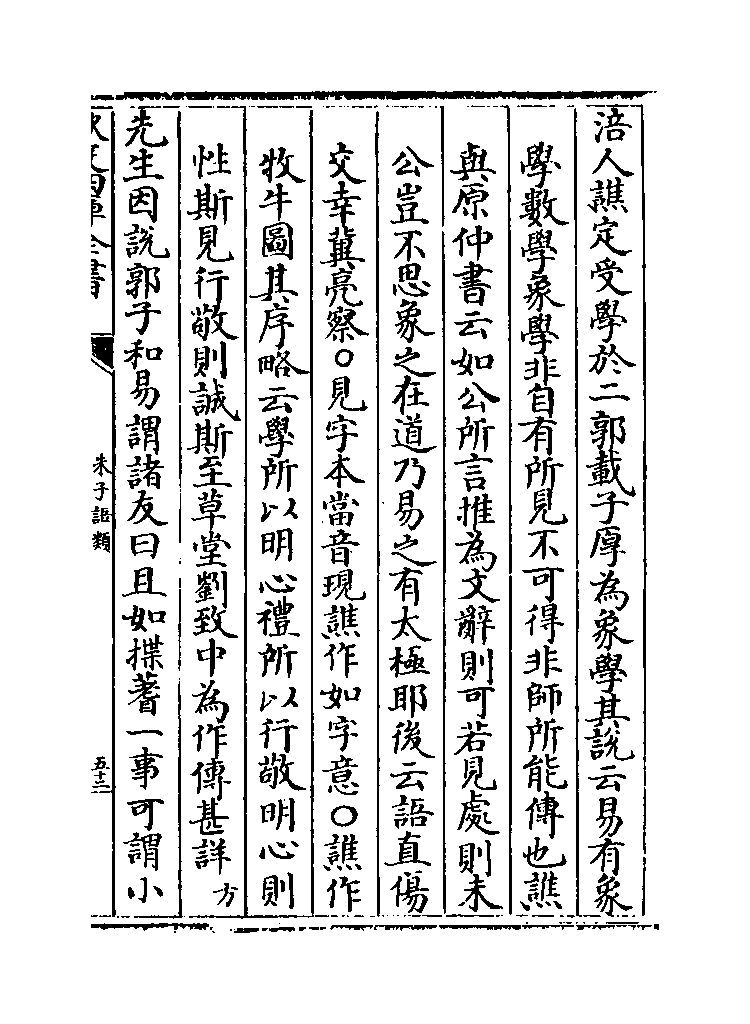 涪人譙定受學於二郭載子厚為象學其說云易有象
學數學象學非自有所見不可得非師所能傳也譙
與原仲書云如公所言推為文辭則可若見處則未
公豈不思象之在道乃易之有太極耶後云語直傷
交幸冀亮察○見字本當音現譙作如字意○譙作
牧牛圖其序略云學所以明心禮所以行敬明心則
性斯見行敬則誠斯至草堂劉致中為作傳甚詳方
先生因說郭子和易謂諸友曰且如揲蓍一事可謂小
朱子語類
五十三